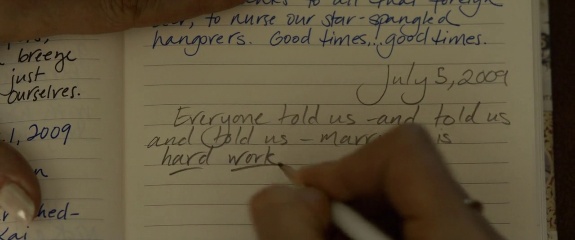 breeze
just
ourselves.
, 2009
to all that foreign
, to nurse our star-spangled
hangovers. Good times, good times.
July 5, 2009
Everyone told us – and told us
and told us – is
hard work